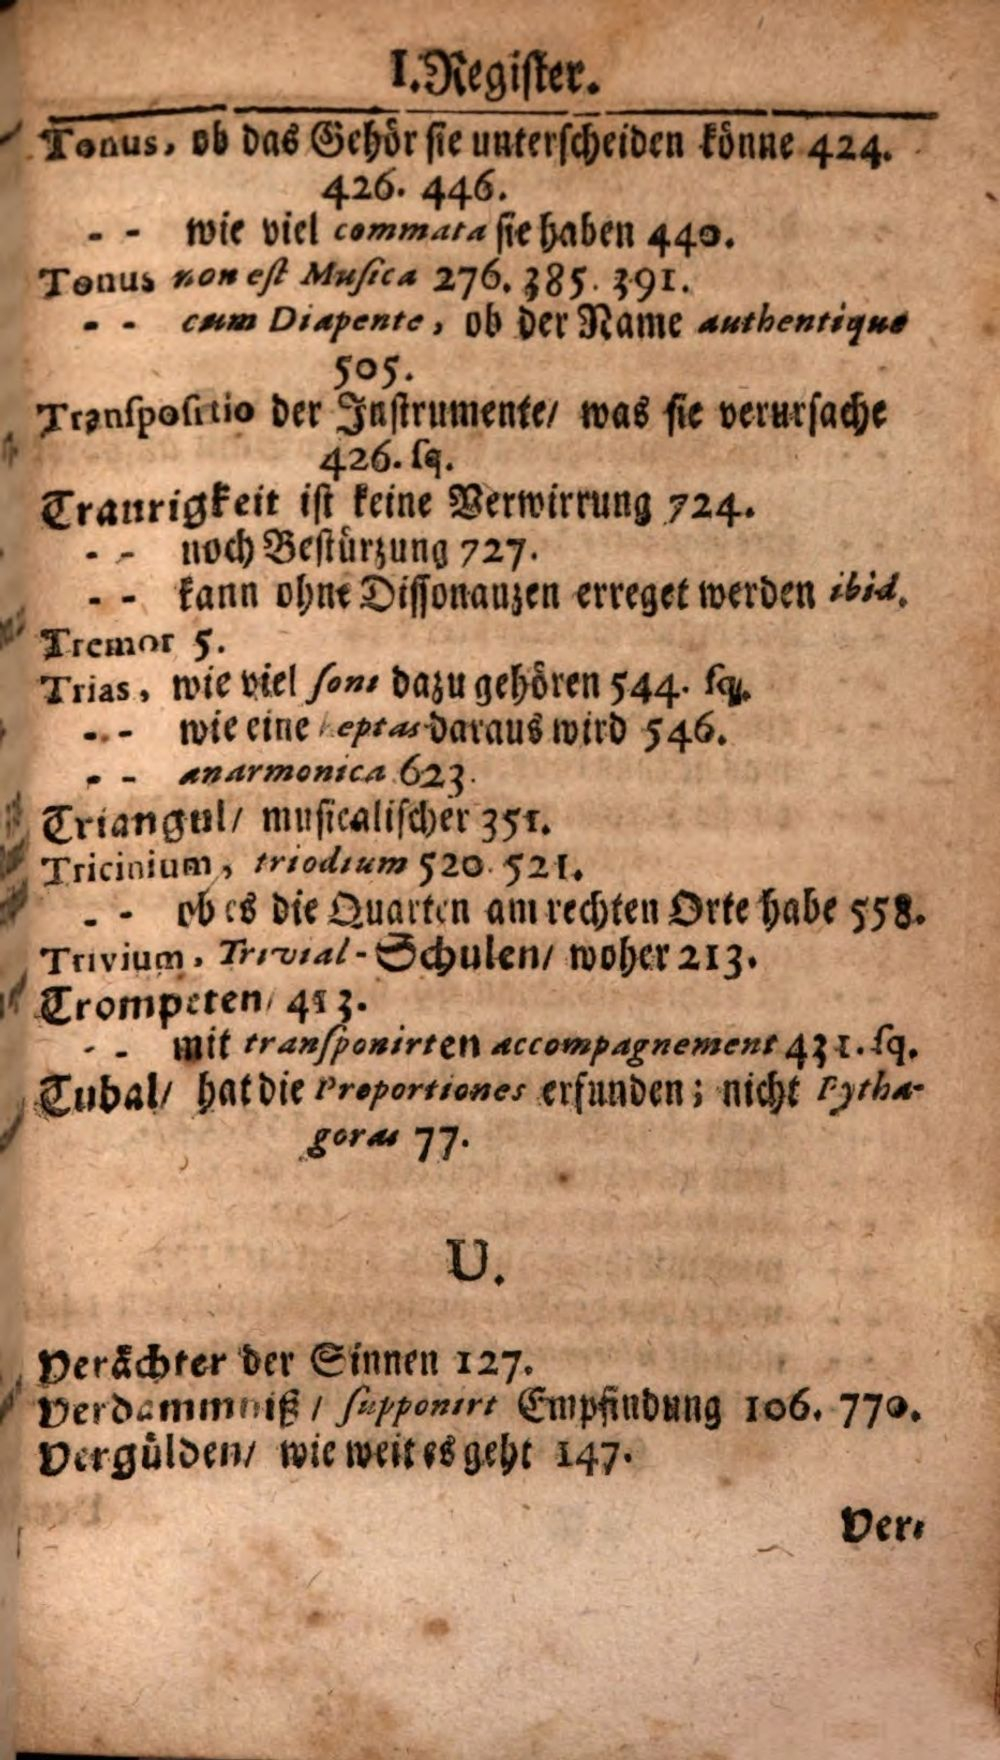 I. Register.
Tonus, ob das Gehör sie unterscheiden könne 424.
426. 446.
- - wie viel commata sie haben 440.
Tonus non est Musica 276. 385. 391.
- - cum Diapente, ob der Name authentique
505.
Transpositio der Instrumente/ was sie verursache
426. sq.
Traurigkeit ist keine Verwirrung 724.
- - noch Bestürzung 727.
- - kann ohne Dissonanzen erreget werden ibid.
Tremor 5.
Trias, wie viel soni dazu gehören 544. sq.
- - wie eine heptas daraus wird 546.
- - anarmonica 623.
Triangul/ musicalischer 351.
Tricinium, triodium 520. 521.
- - ob es die Quarten am rechten Orte habe 558.
Trivium, Trivial-Schulen/ woher 213.
Trompeten/ 413.
- - mit transponirten accompagnement 431. sq.
Tubal/ hat die Proportiones erfunden; nicht Pytha-
goras 77.
U.
Verächter der Sinnen 127.
Verdammniß/ supponirt Empfindung 106. 770.
Vergülden/ wie weit es geht 147.
Ver-